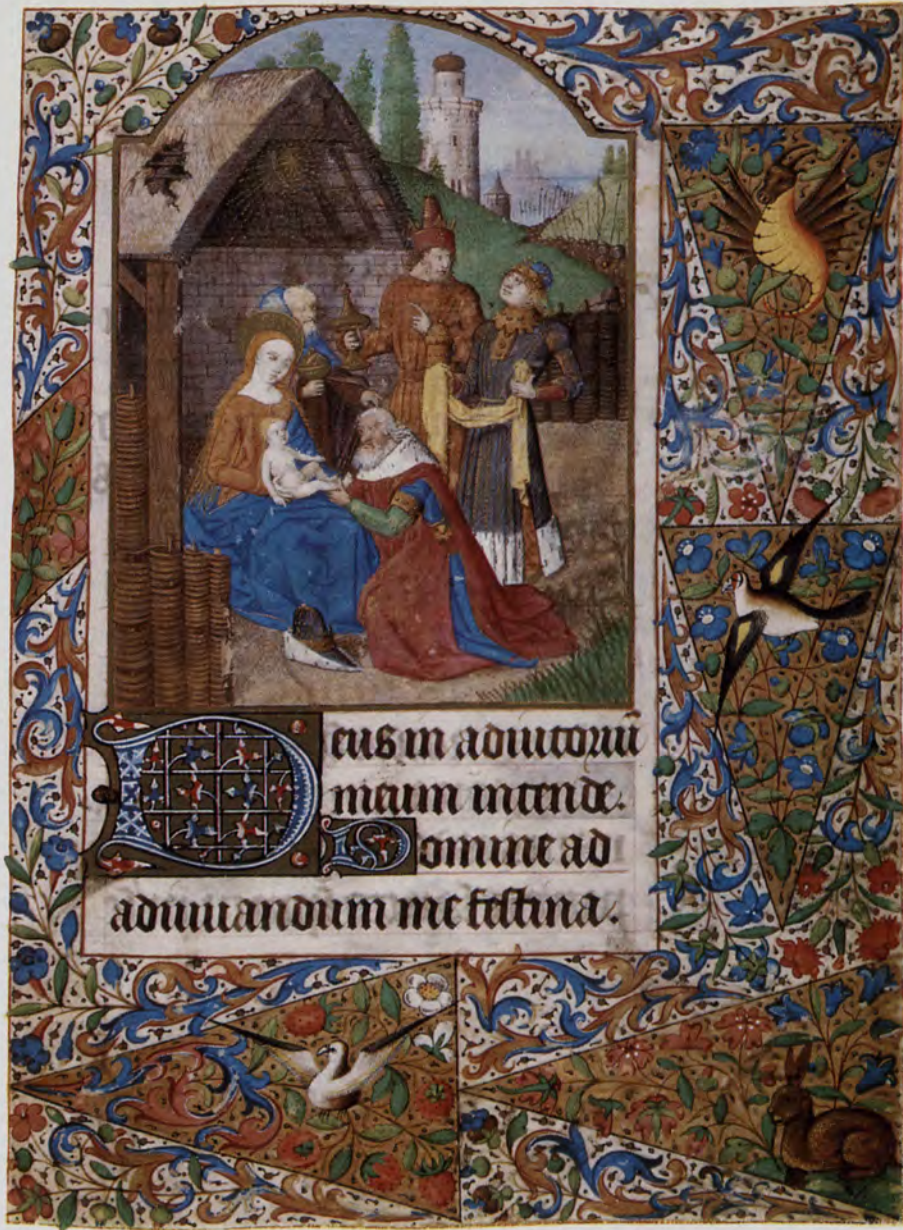 Deus in adiutoriū
meum intende.
Domine ad
adiuuandum me festina.